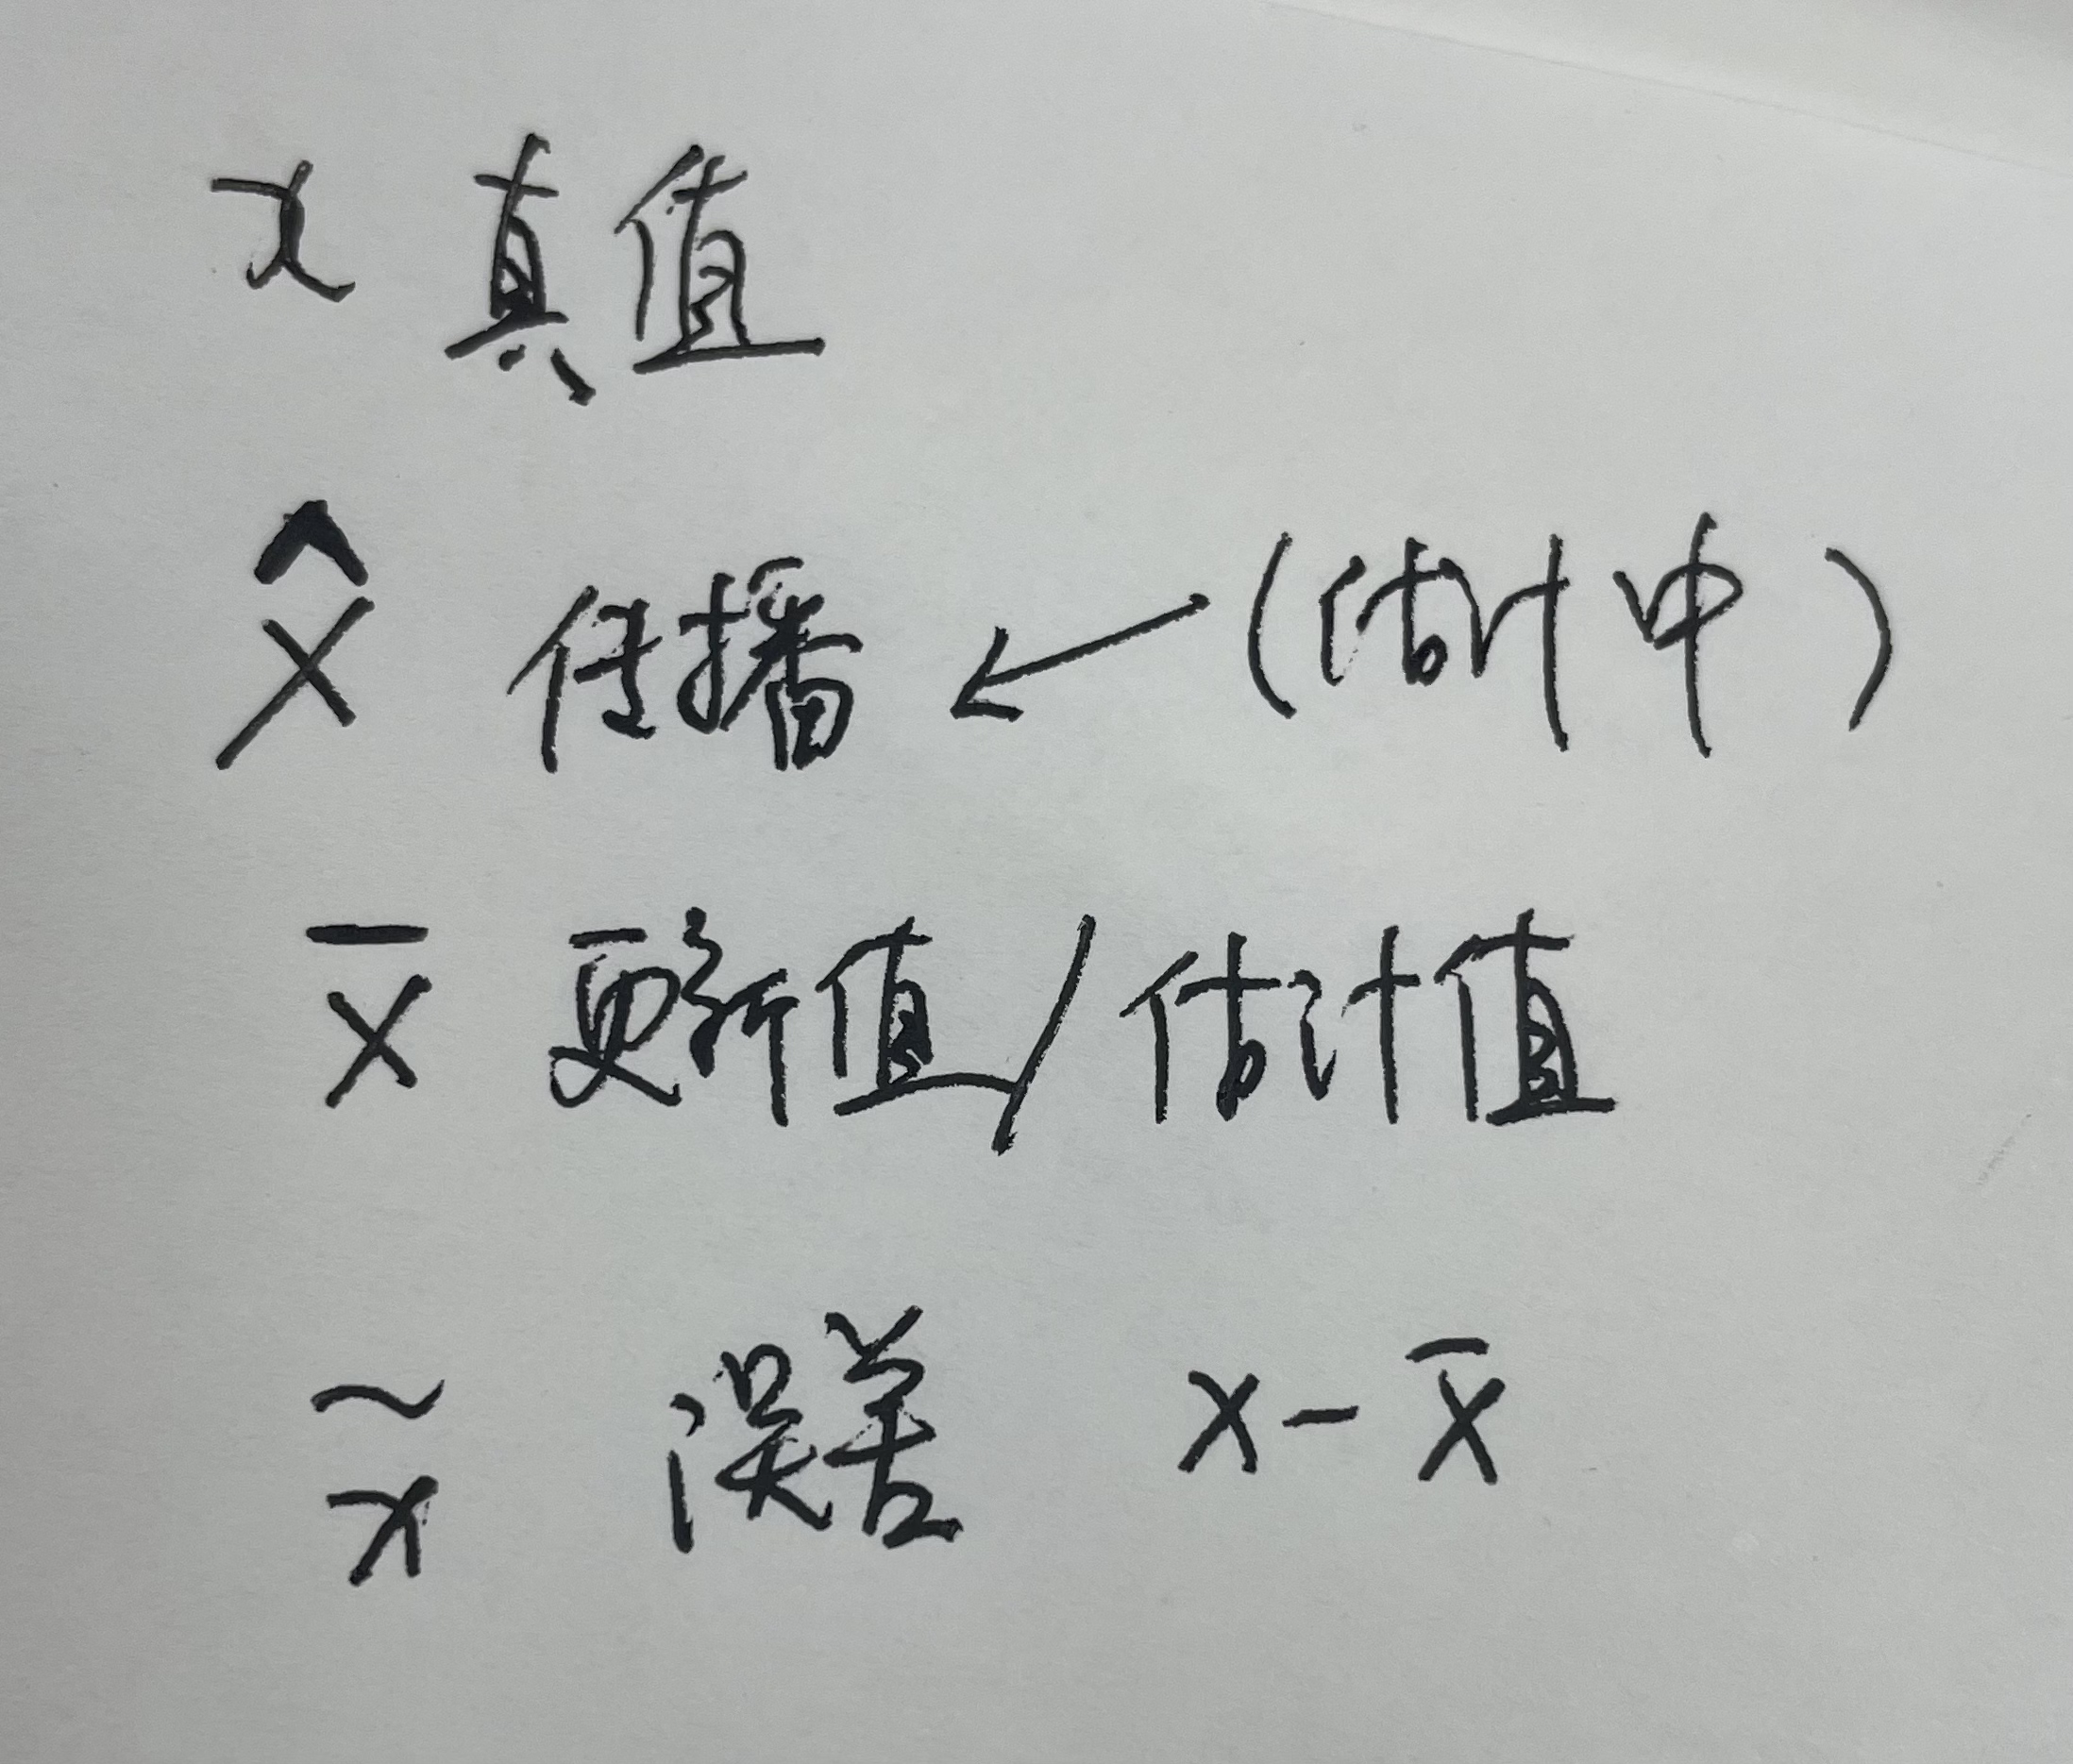 x 真值
x̂ 传播 ← (估计中)
x̄ 更新值/估计值
x̃ 误差 x-x̄